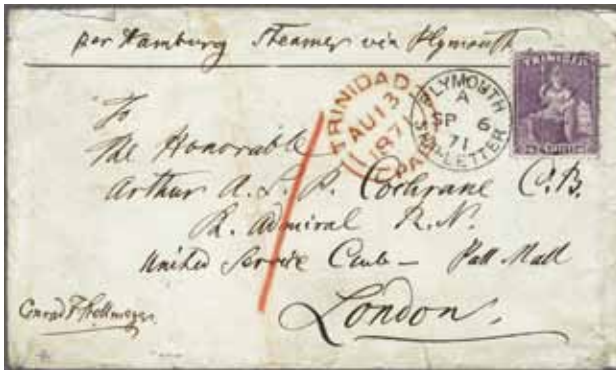 per Hamburg Steamer via Plymouth
TRINIDAD
AU 13
187
PAI
PLYMOUTH
A
SP 6
71
SHIP-LETTER
TRINIDAD
To
The Honorable
Arthur A. L. P. Cochrane C.B.
R. Admiral R.N.
United Service Club – Pall Mall
London.
Conrad F.